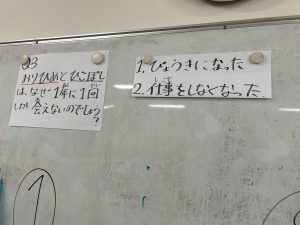 Q3
おりひめとひこぼし
は、なぜ1年に1回
しか会えないのでしょう
?
1.びょうきになった
2.仕事をしなくなった
しごと
1